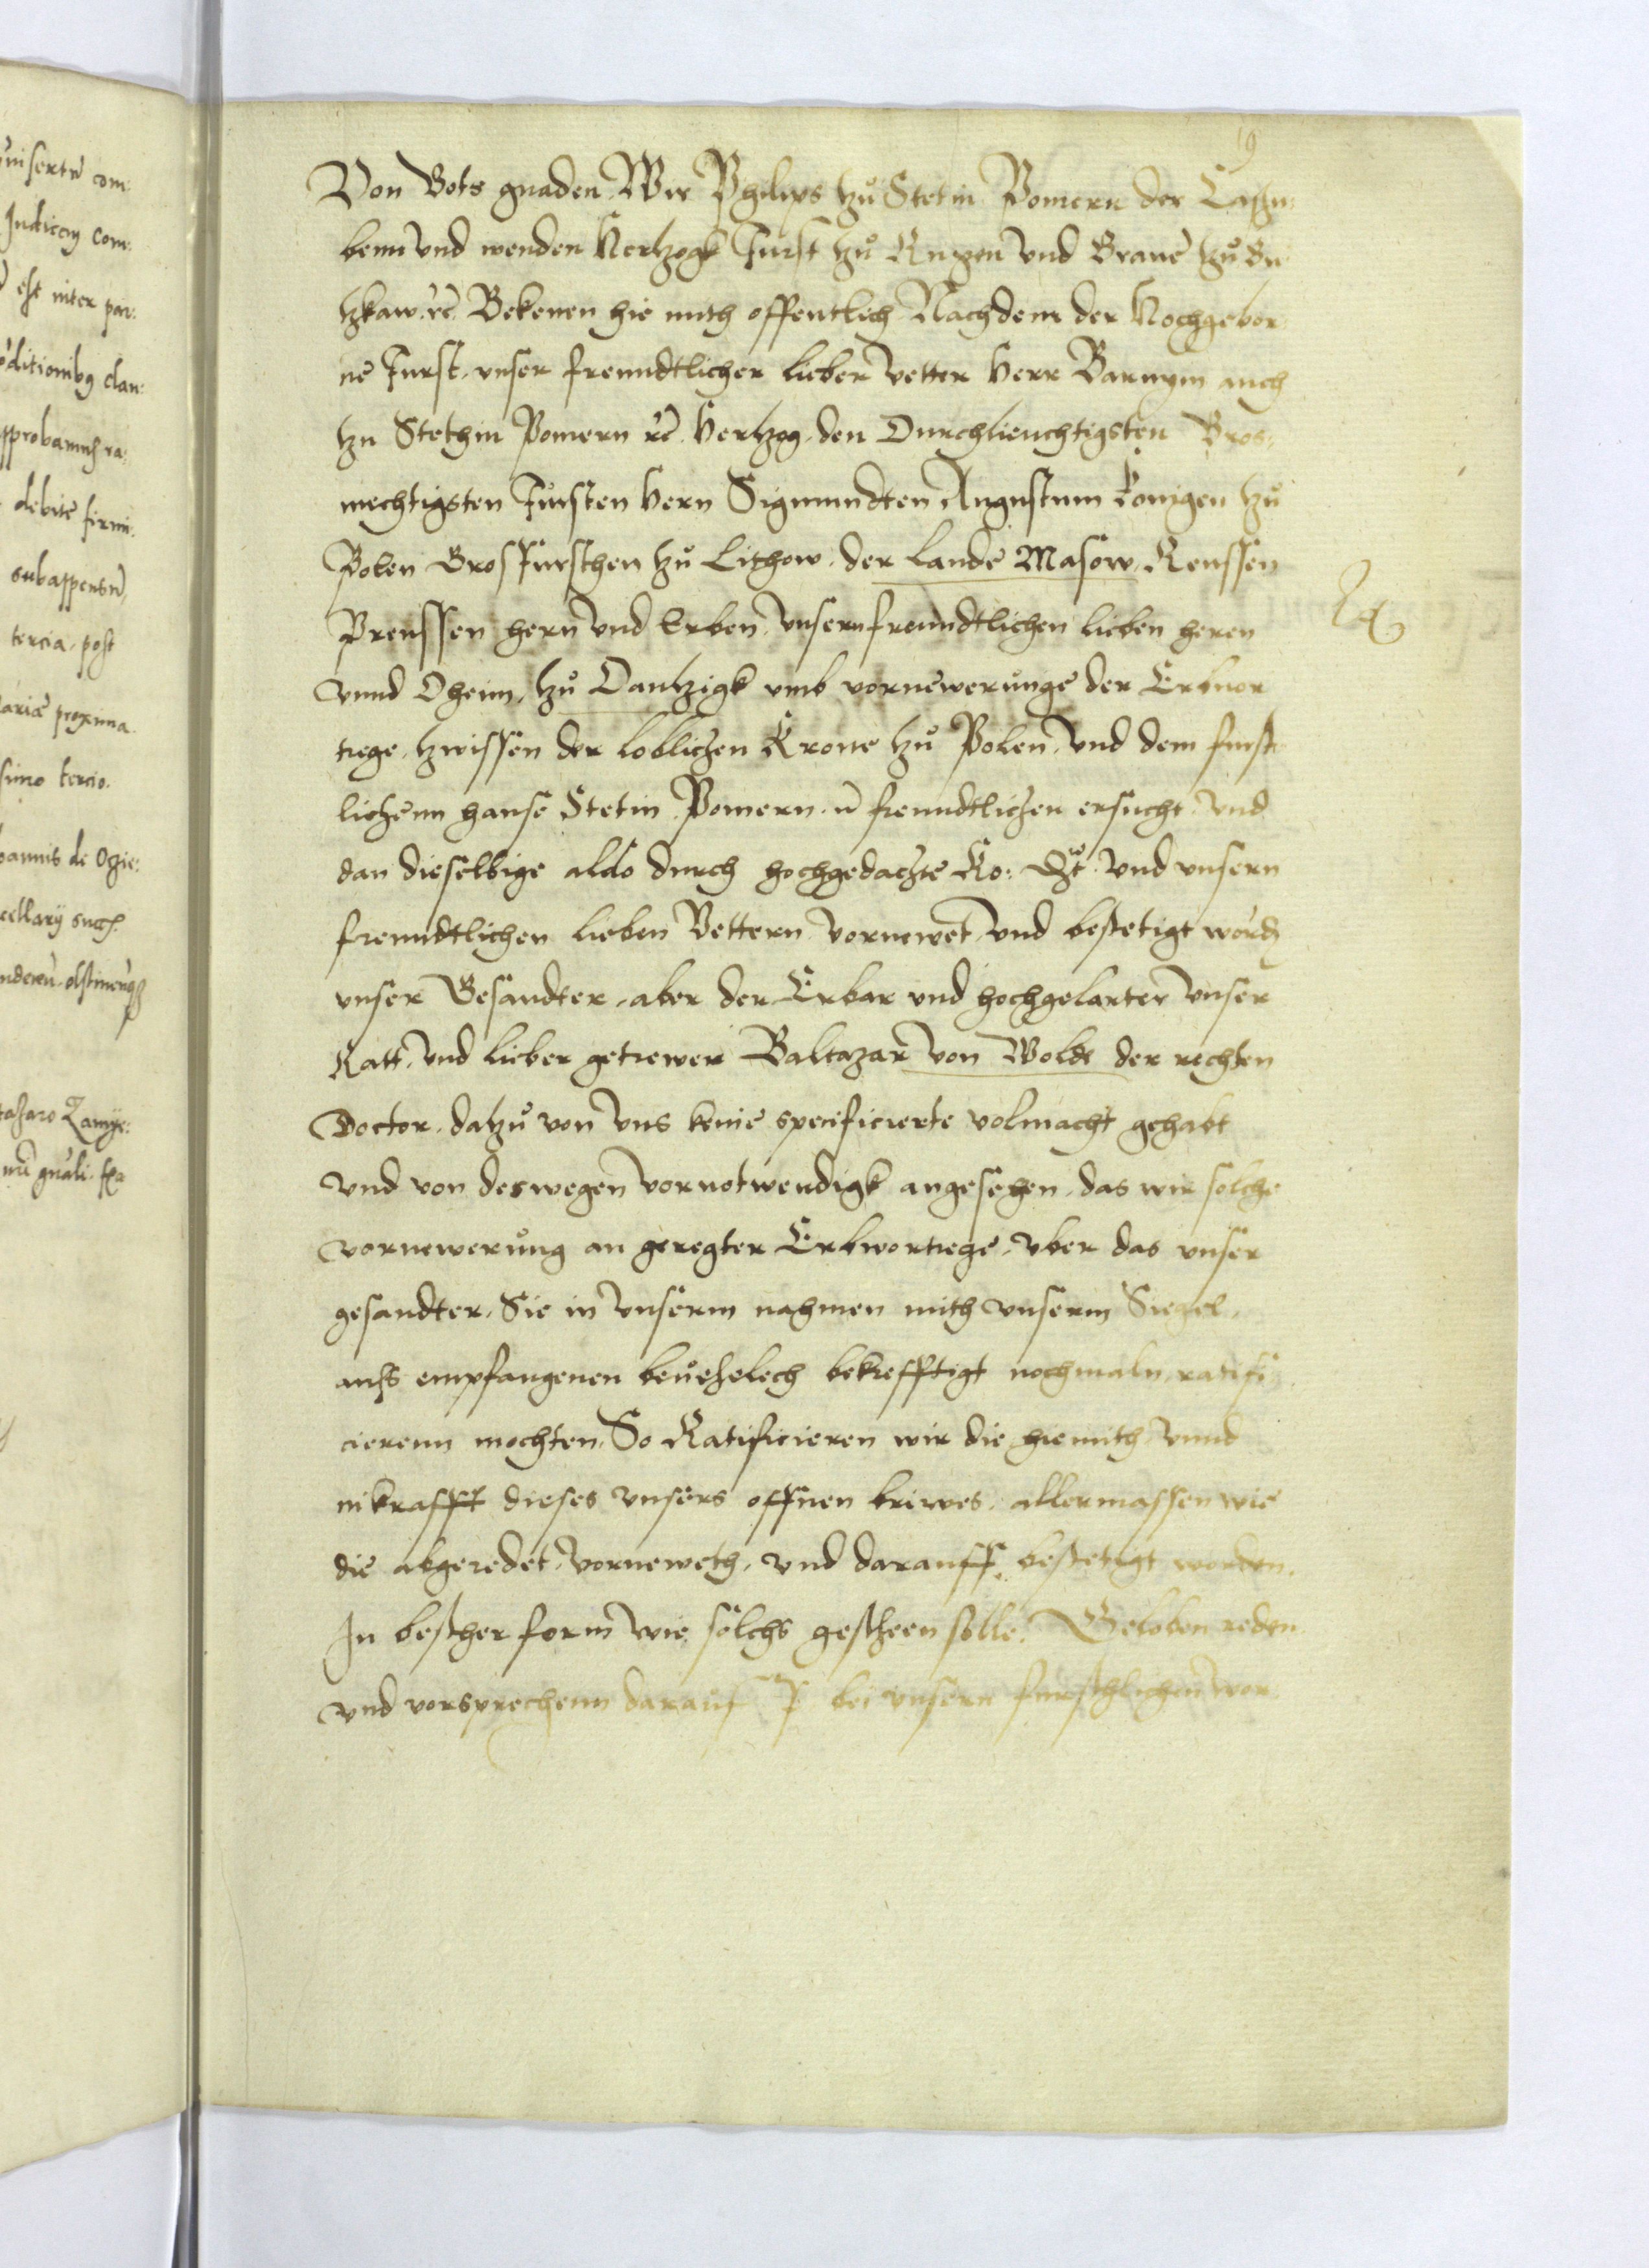 9
Von Gots gnaden Wir Philips hzu Stetin Pomern der Cassu:
benn vnd wenden Hertzogk Furst hzu Rugen vnd Graue hzu Gu
hzkaw ꝛc Bekenen hie mith offentlich Nachdem der Hochgebor
ne Furst, vnser freundtlicher lieber vetter Herr Barnym auch
hzu Stethin Pomern ꝛc. Hertzog, den Durchlieuchtigsten Gros,
mechtigsten Fursten Hern Sigmundten Augustum Konigen hzu
Polen Grosfursthen hzu Lithow, der Lande Masow, Reussen
Preussen hern vnd Erben, vnsern freundtlichen lieben heren
vnnd Oheim, hzu Dantzigk vmb vornewerunge der Erbuor
trege, hzwissen der loblichen Krone hzu Polen, vnd dem furst
lichenn hause Stetin Pomern freundtlichen ersucht, vnd
dan dieselbige aldo durch hochgedachte Ko: vnd vnsern
freundtlichen lieben Vettern vornewet, vnd bestetigt
vnser Gesandter, aber der Erbar vnd hochgelarter vnser
Ratt, vnd lieber getrewer Baltazar von Wolde der rechten
Doctor, dahzu von vns keine specificierte volmacht gehabt
vnd von deswegen vornotwendigk angesehen, das wir solche
vornewerung an geregter Erbvortrege, vber das vnser
gesandter, Sie in vnserm nahmen mith vnserm Siegel,
auss empfangenen beuehelech bekrefftigt nochmaln, ratifi
cierenn mochten, So Ratificieren wir die hiemith vnnd
in krafft dieses vnsers offnen briewes, allermassen wie
die abgeredet, vorneweth, vnd darauff, bestetigt worden,
In besther form wie solchs gescheen solle. Geloben reden
vnd vorsprechenn darauf bei vnsern fursthlichen wor